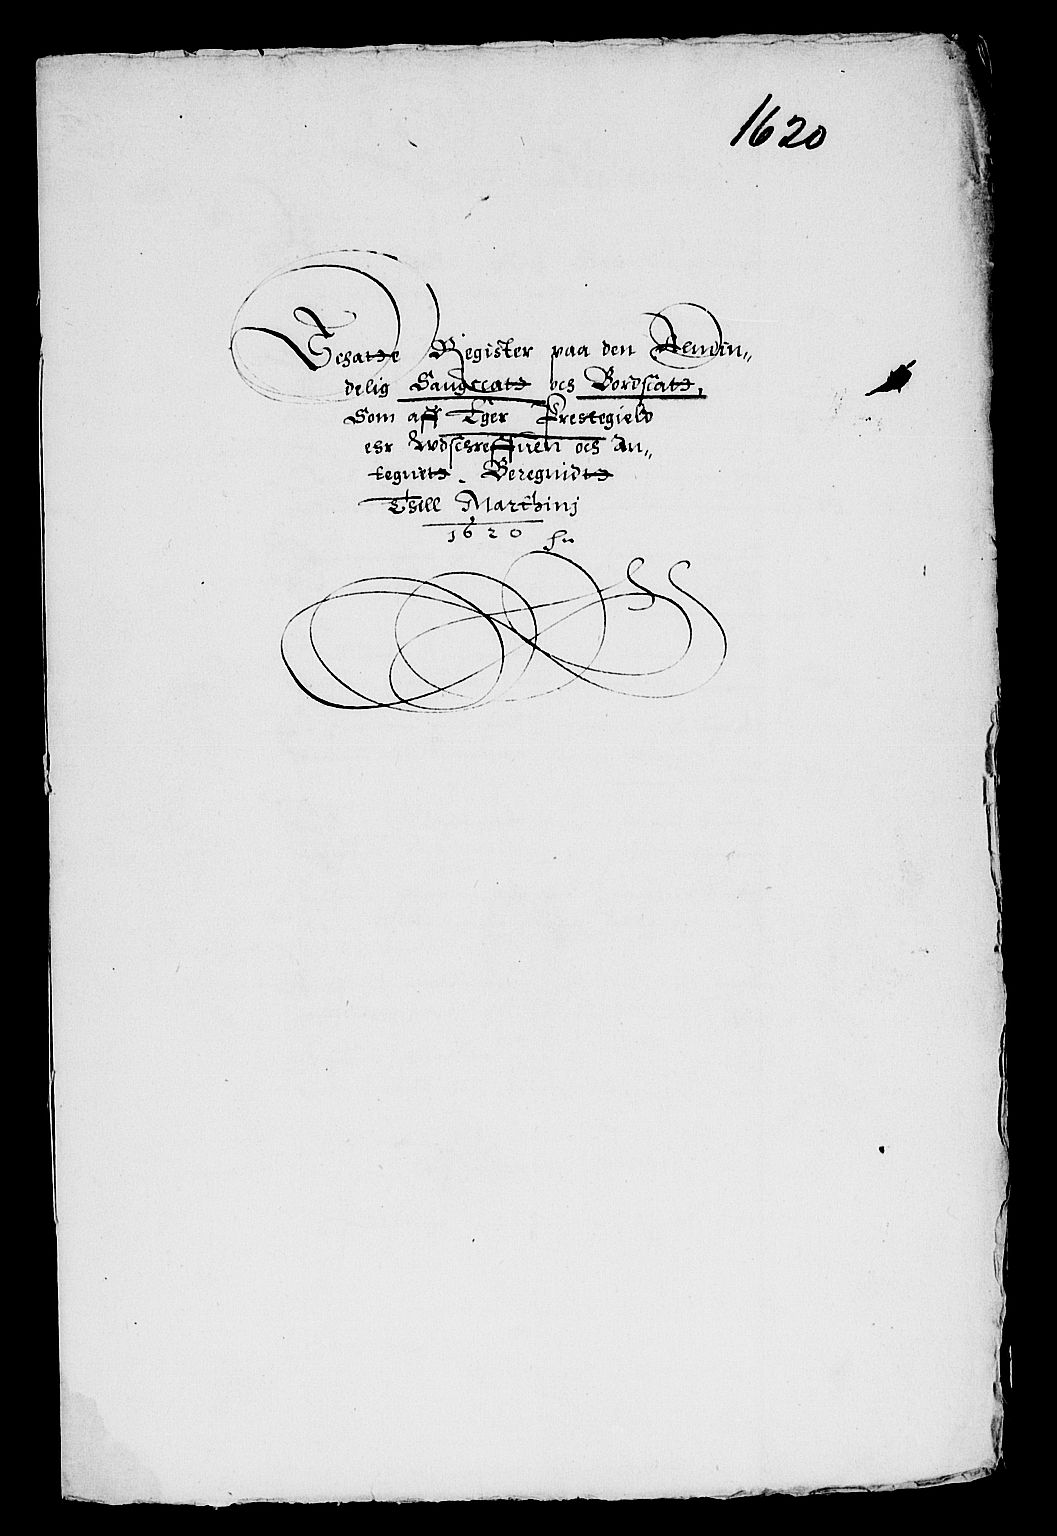 1620
Schatte Register paa den Almin„
delig Saugscatt och Bordscatt,
Som aff Eger Prestegield
ehr Wdschreffuen och An„
tegnett. Beregnidtt
Thill Marthinj
1620